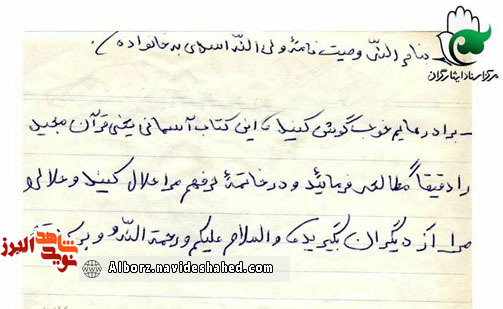 مرکز اسناد ایثارگران
بنام اللّه وصیت نامهٔ ولی اللّه اسلامی به خانواده.
- برادرهایم خوب گوش کنید که این کتاب آسمانی یعنی قرآن مجید
را دقیقاً مطالعه فرمائید و در خاتمهٔ حرفهم مرا حلال کنید و حلالی
مرا از دیگران بگیرید. والسلام علیکم ورحمة اللّه و برکاته
نوید شاهد البرز
Alborz.navideshahed.com